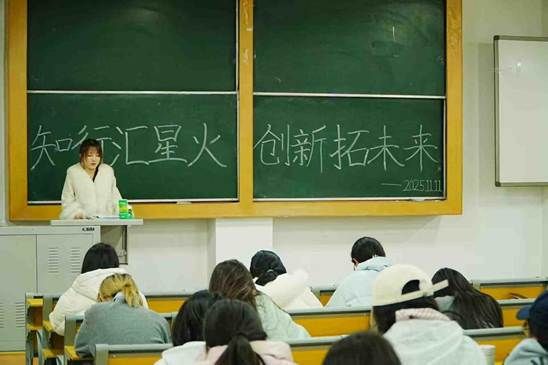 知行汇星火 创新拓未来
——2025.11.11